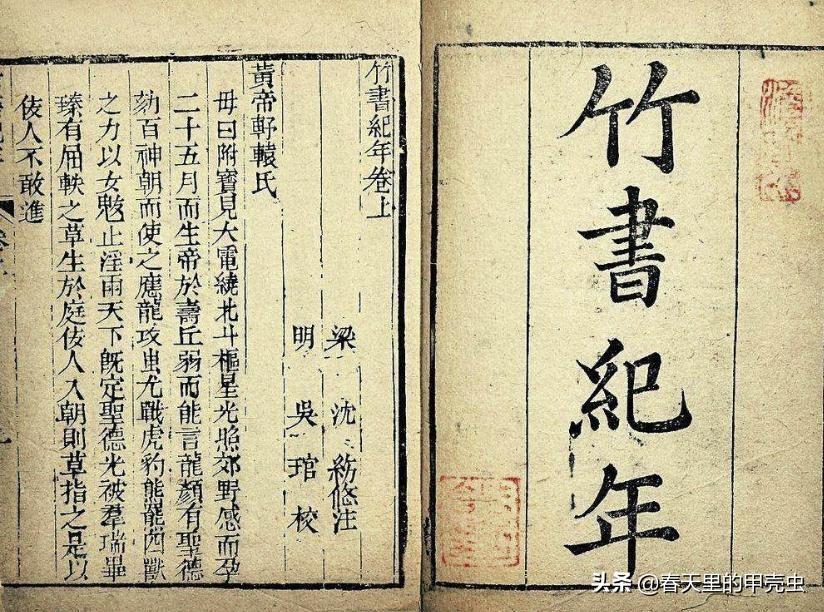 竹書紀年
竹書紀年卷上
梁 沈 約附注
明 吳 琯 校
黃帝軒轅氏
母曰附寶見大電繞北斗樞星光照郊野感而孕
二十五月而生帝於壽丘弱而能言龍顏有聖德
劾百神朝而使之應龍攻蚩尤戰虎豹熊羆四獸
之力以女魃止淫雨天下既定聖德光被羣瑞畢
臻有屈軼之草生於庭佞人入朝則草指之是以
佞人不敢進
头条 @春天里的甲壳虫